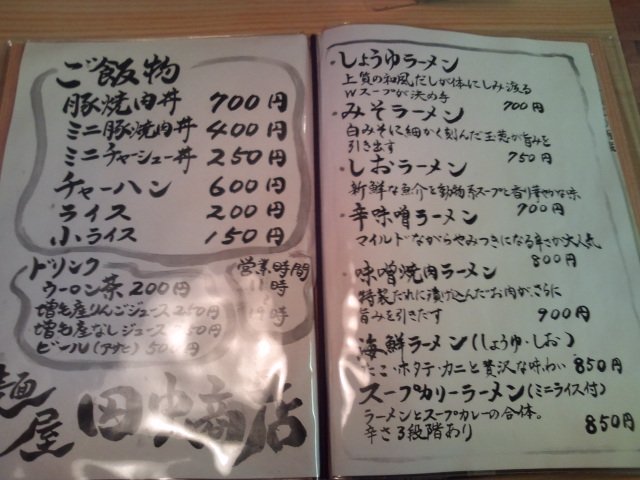 ご飯物
豚焼肉丼 700円
ミニ豚焼肉丼 400円
ミニチャーシュー丼 250円
チャーハン 600円
ライス 200円
小ライス 150円
ドリンク
ウーロン茶 200円
増毛産りんごジュース 250円
増毛産なしジュース 250円
ビール(アサヒ) 500円
営業時間
11時
〜
19時
麺屋 田中商店
・しょうゆラーメン
上質の和風だしが体にしみ渡る
Wスープが決め手 700円
・みそラーメン
白みそに細かく刻んだ玉葱が旨みを
引き出す 750円
・しおラーメン
新鮮な魚介と動物系スープと香り華やかな味
700円
・辛味噌ラーメン
マイルドながらやみつきになる辛さが大人気
800円
・味噌焼肉ラーメン
特製だれに漬け込んだお肉がさらに
旨みを引きたす 900円
海鮮ラーメン(しょうゆ・しお)
たこ・ホタテ・カニと贅沢な味わい 850円
スープカリーラーメン(ミニライス付)
ラーメンとスープカレーの合体。
辛さ3段階あり 850円